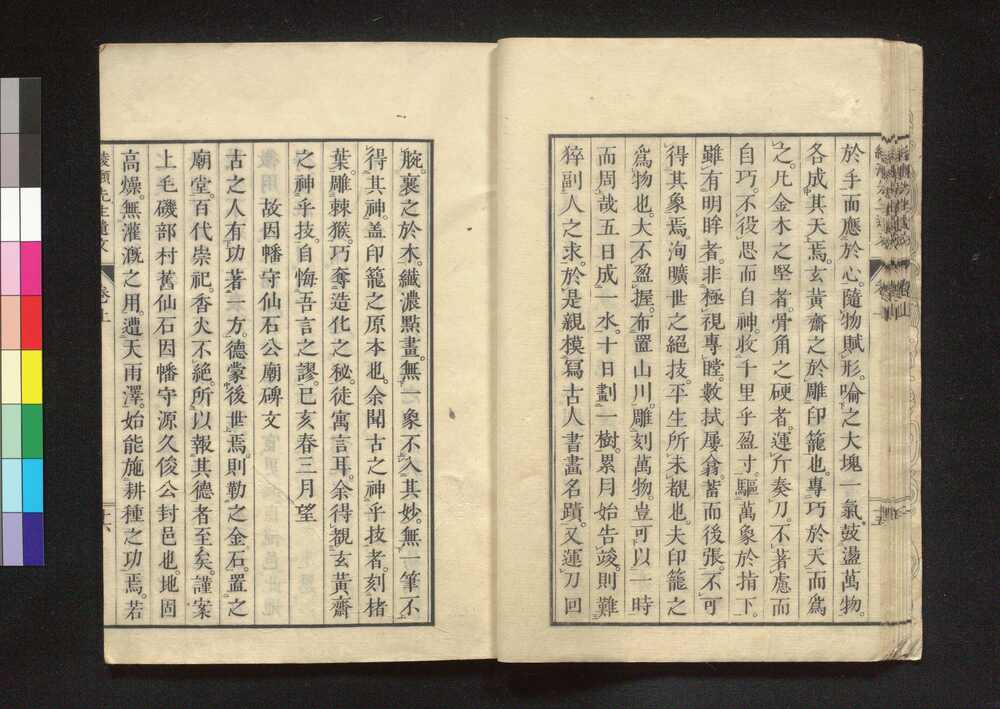 於手而應於心。隨物賦形。喩之大塊一氣。鼓盪萬物。
各成其天焉。玄黃齋之於雕印籠也。專巧於天而爲
之。凡金木之堅者。骨角之硬者。運斤奏刀。不著慮而
自巧。不役思而自神。收千里乎盈寸。驅萬象於指下。
雖有明眸者。非極視專瞠。數拭屢翕。蓄而後張。不可
得其象焉。洵曠世之絕技。平生所未覩也。夫印籠之
爲物也。大不盈握。布置山川。雕刻萬物。豈可以一時
而周哉。五日成一水。十日劃一樹。累月始告竣。則難
猝副人之求。於是親模寫古人書畫名蹟。又運刀回
腕。裹之於木。纖濃點畫。無一象不入其妙。無一筆不
得其神。盖印籠之原本也。余聞古之神乎技者。刻楮
葉。雕棘猴。巧奪造化之秘。徒寓言耳。余得觀玄黃齋
之神乎技。自悔吾言之謬。已亥春三月望
故因幡守仙石公廟碑文
古之人有功著一方。德蒙後世焉。則勒之金石。置之
廟堂。百代崇祀。香火不絕。所以報其德者至矣。謹案
上毛磯部村舊仙石因幡守源久俊公封邑也。地固
高燥。無灌漑之用。遭天雨澤。始能施耕種之功焉。若
先生遺文 卷上